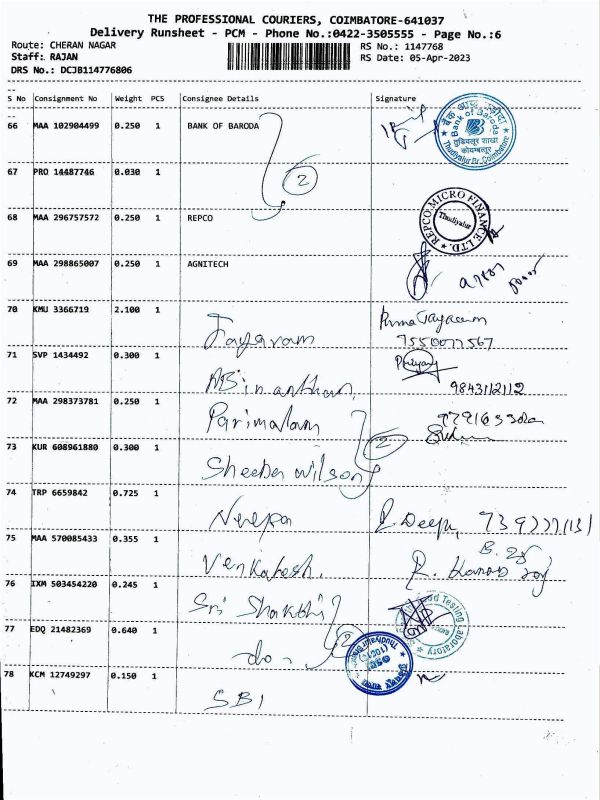 THE PROFESSIONAL COURIERS, COIMBATORE-641037
Delivery Runsheet - PCM - Phone No.:0422-3505555 - Page No.:6
Route: CHERAN NAGAR RS No.: 1147768
Staff: RAJAN RS Date: 05-Apr-2023
DRS No.: DCJB114776806
S No Consignment No Weight PCS Consignee Details Signature
66 MAA 102904499 0.250 1 BANK OF BARODA
बैंक ऑफ़ बड़ौदा
Bank of Baroda
तुडियलूर शाखा
कोयम्बत्तूर
Thudiyalur Br., Coimbatore
67 PRO 14487746 0.030 1
2
68 MAA 296757572 0.250 1 REPCO
REPCO MICRO FINANCE LTD.
Thudiyalur
69 MAA 298865007 0.250 1 AGNITECH
70 KMU 3366719 2.100 1 Jayaram
7550077567
71 SVP 1434492 0.300 1 ABinanthan
9843112112
72 MAA 298373781 0.250 1 Parimalam
73 KUR 608961880 0.300 1 Sheeba Wilson
2
74 TRP 6659842 0.725 1
Deepa,
75 MAA 570085433 0.355 1 Venkatesh.
76 IXM 503454220 0.245 1 Sri Shakthi
Testing Laboratory
77 EDQ 21482369 0.640 1 do
2
78 KCM 12749297 0.150 1 SBI